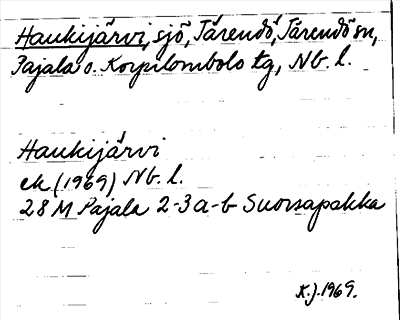 Haukijärvi, sjö, Tärendö, Tärendö sn,
Pajala o. Korpilombolo tg, Nb. l.
Haukijärvi
ek (1969) Nb. l.
28 M Pajala 2-3 a-b Suorsapakka
K.J. 1969.